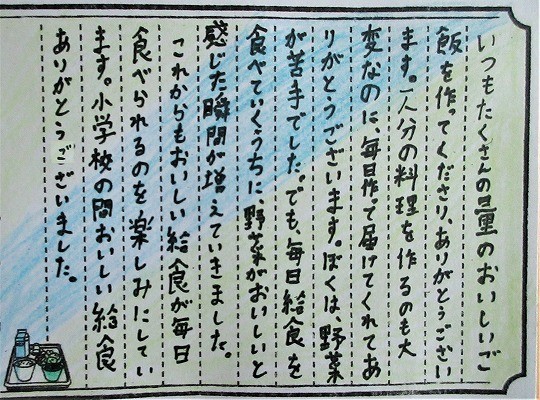 いつもたくさんの量のおいしいご
飯を作ってくださり、ありがとうござい
ます。一人分の料理を作るのも大
変なのに毎日作って届けてくれてあ
りがとうございます。ぼくは、野菜
が苦手でした。でも、毎日給食を
食べていくうちに、野菜がおいしいと
感じた瞬間が増えていきました。
これからもおいしい給食が毎日
食べられるのを楽しみにしてい
ます。小学校の間おいしい給食
ありがとうございました。